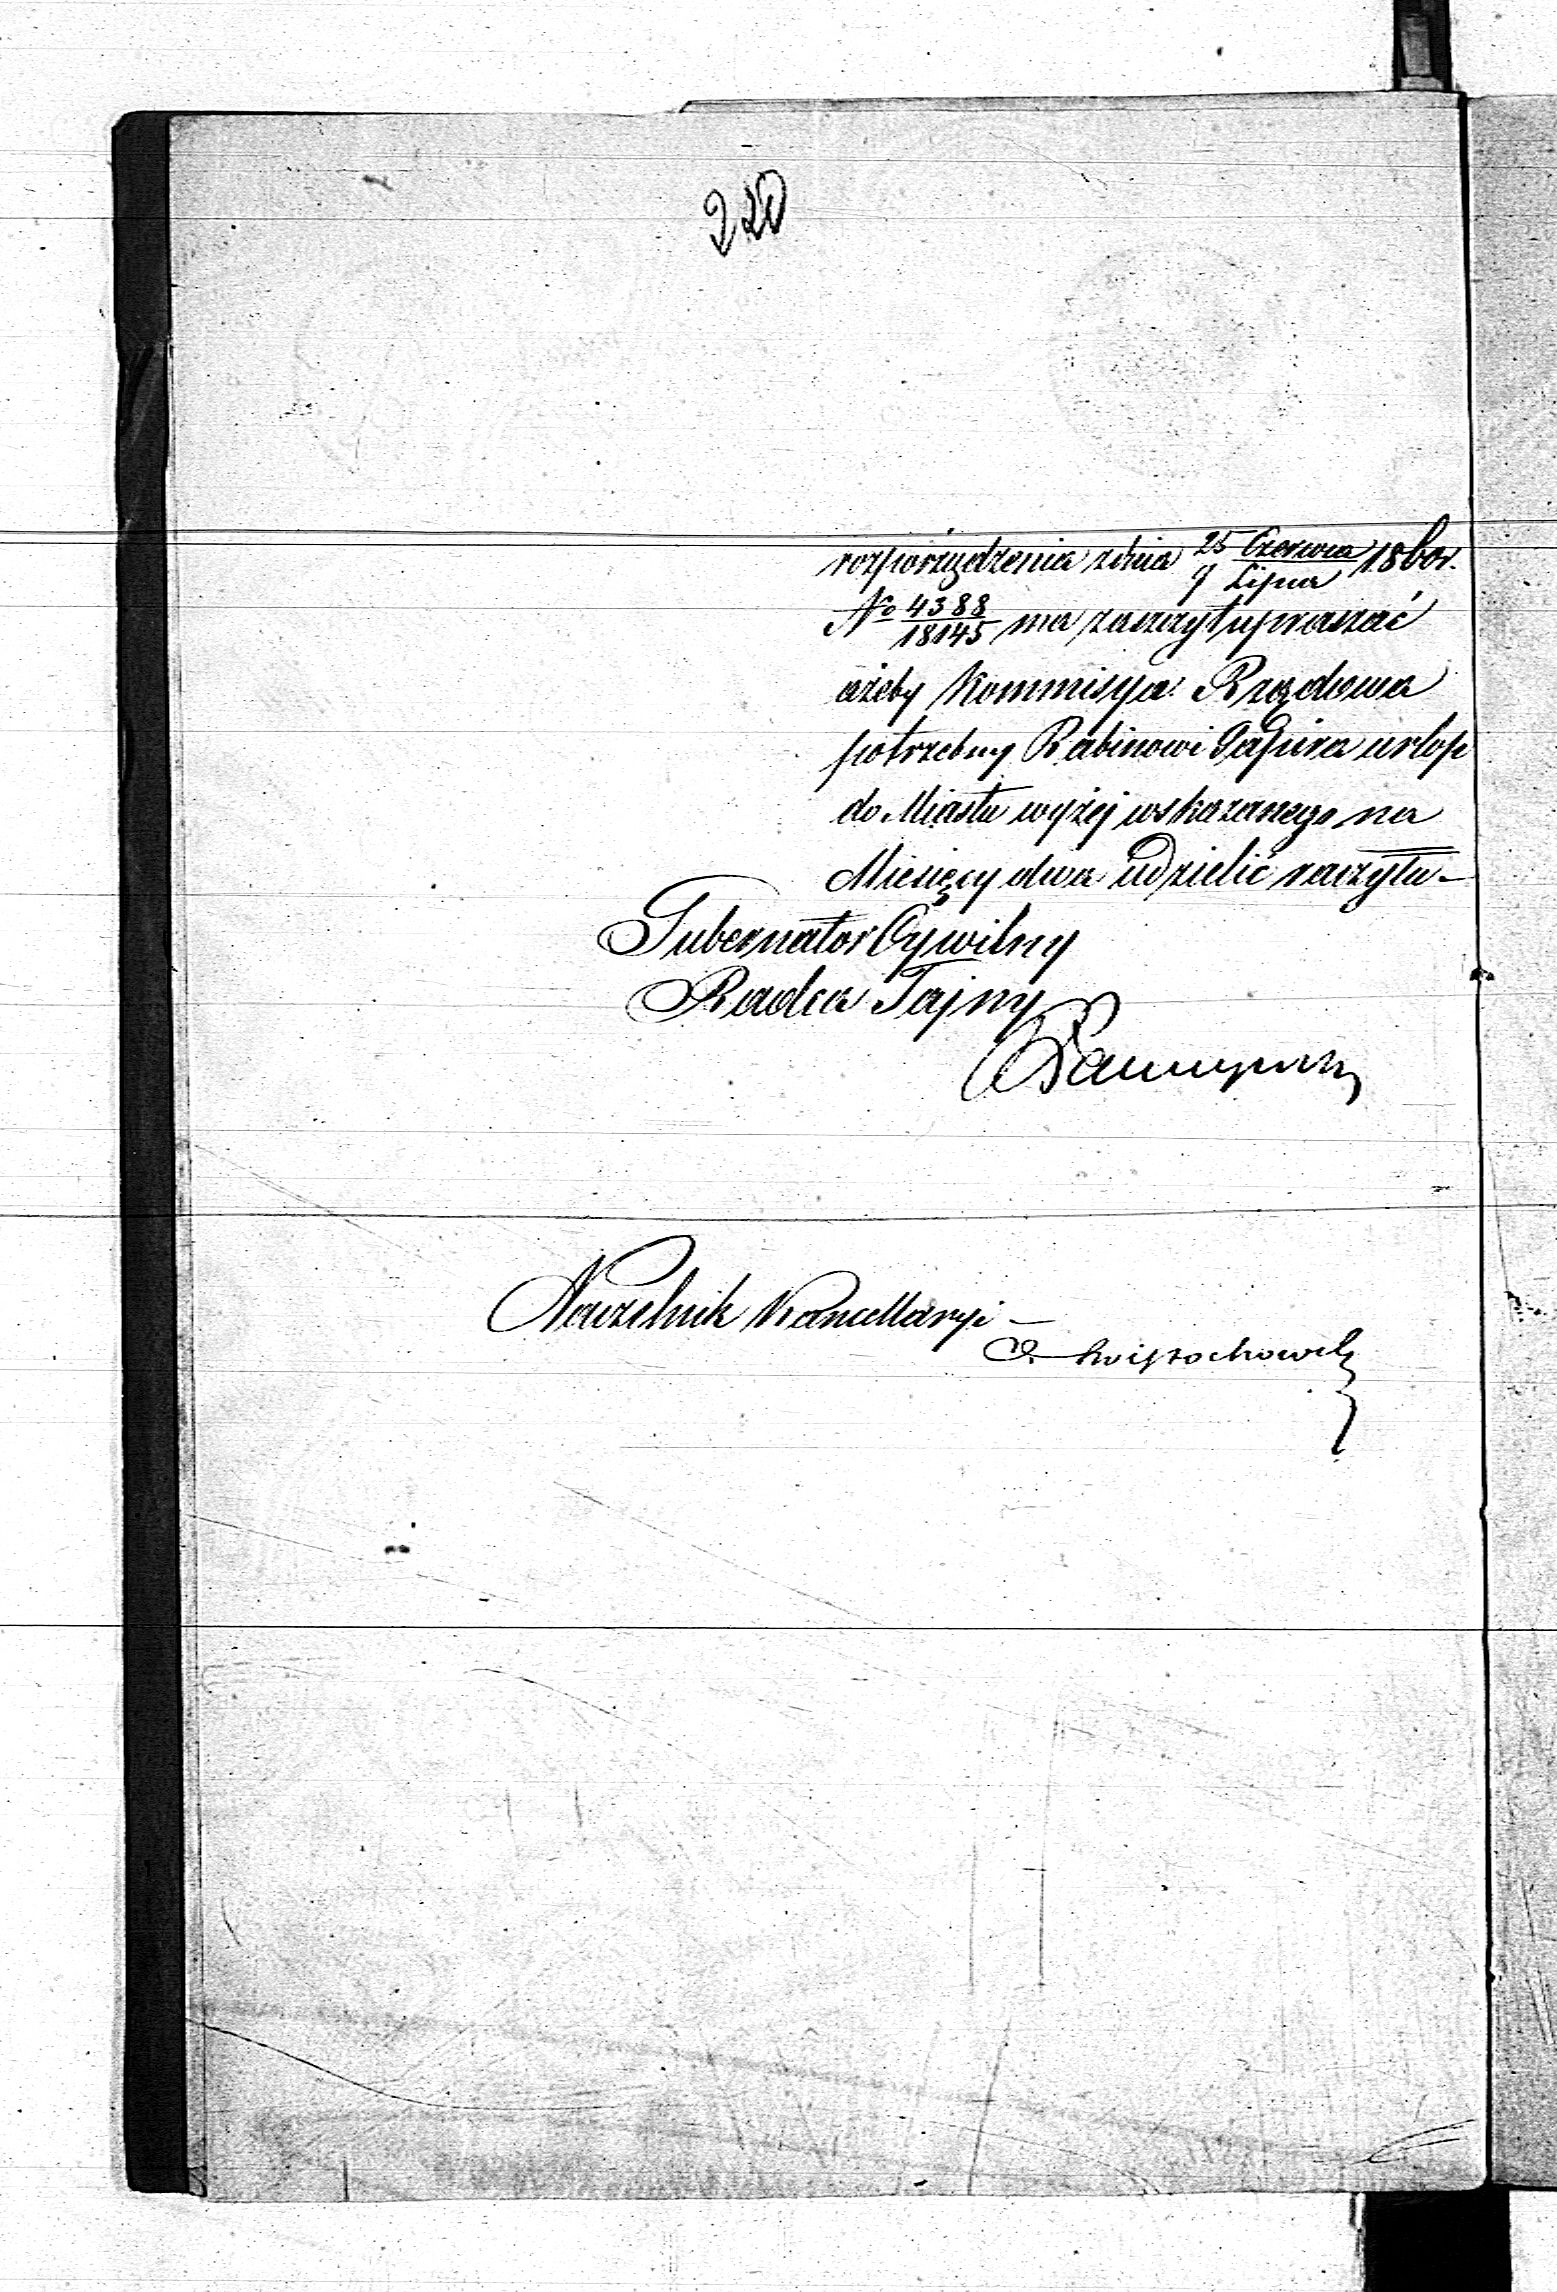 220
rozporządzenia z dnia 25 Czerwca / 9 Lipca 1860 r.
No 4388/18145 ma zaszczyt upraszać
ażeby Kommisya Rządowa
potrzebny Rabinowi Szapira urlop
do Miasta wyżej wskazanego na
Miesięcy dwa udzielić raczyła –
Gubernator Cywilny
Radca Tajny
Naczelnik Kancellaryi –